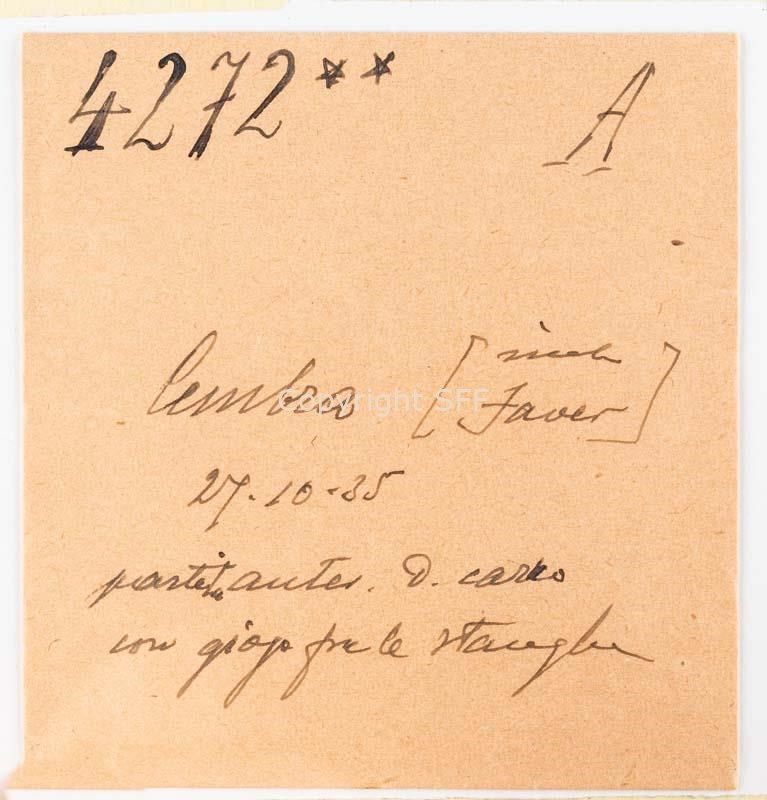 4272** A
Cembra [
Faver ]
27.10.35
parti anter. d. carro
con giogo fra le stanghe
Copyright SFF